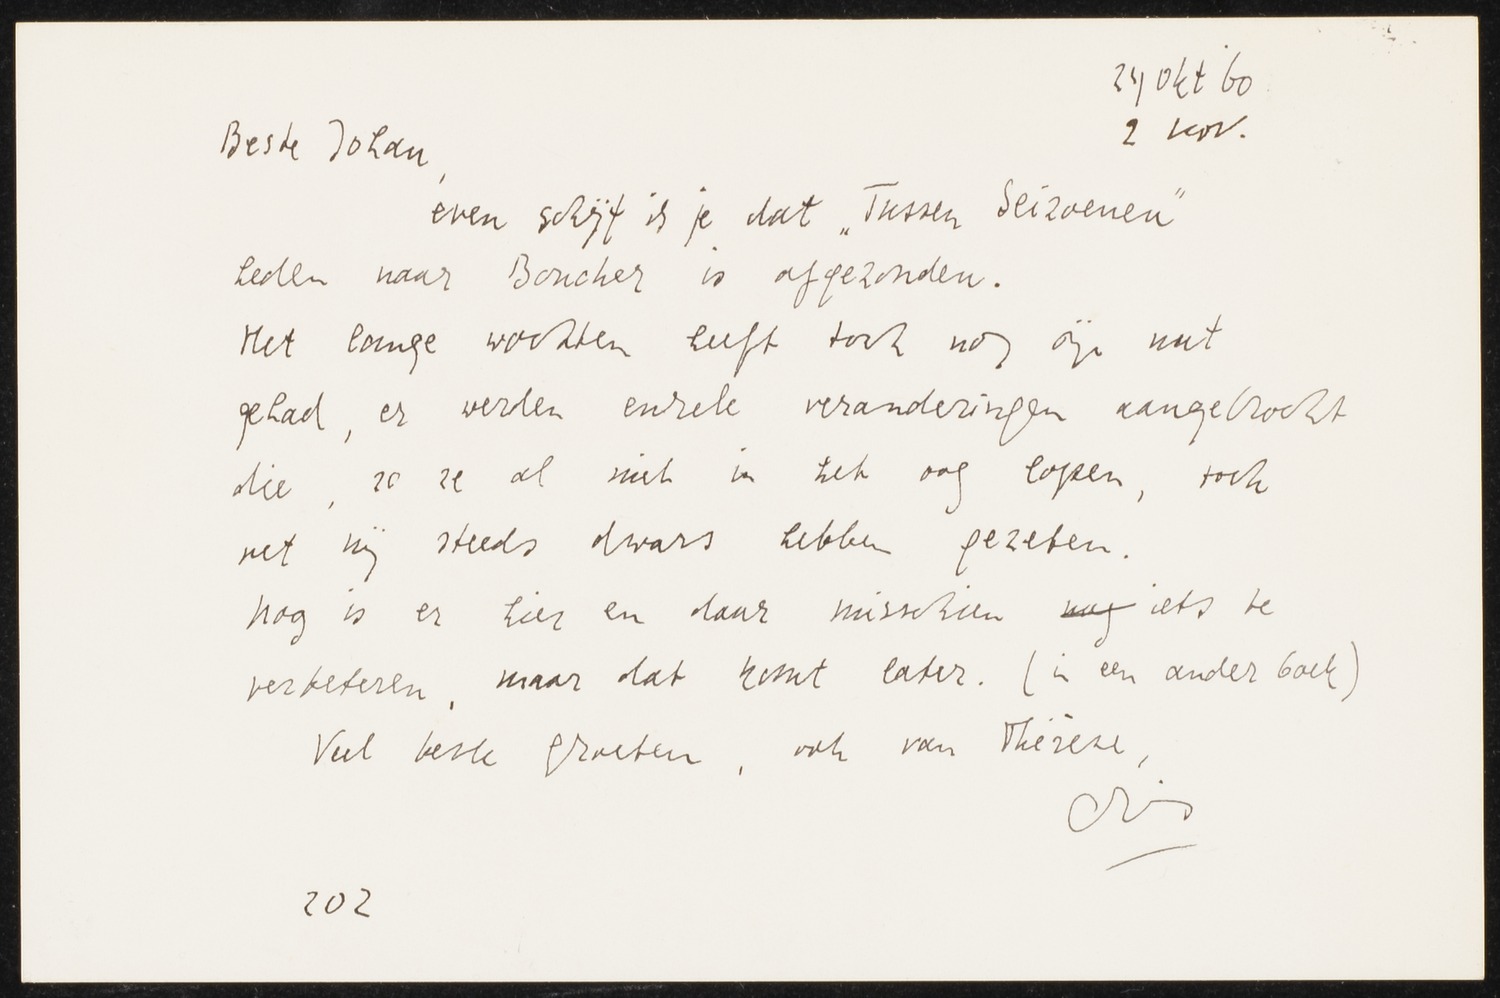 24 okt 60
2 nov.
Beste Johan,
even schrijf ik je dat „Tussen Seizoenen"
heden naar Boucher is afgezonden.
Het lange wachten heeft toch nog zijn nut
gehad, er werden enkele veranderingen aangebracht
die, zo ze al niet in het oog lopen, toch
net mij steeds dwars hebben gezeten.
Nog is er hier en daar misschien nog iets te
verbeteren, maar dat komt later. (in een ander boek)
Veel beste groeten, ook van Thérèse,
Chris
202